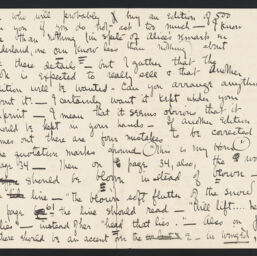 who will probably buy an edition of 500
you if you do not ask too much — I know
than nothing (in spite of Alice's remark in
Wonderland, one can know less than nothing) about
these details — but I gather that the
is expected to really sell & that another
edition will be wanted. Can you arrange anything
about it — I certainly want it kept under your
imprint — I mean that it seems obvious that it
should be kept in your hands — If another edition
comes out there are four mistakes to be corrected
quotation marks around "This is my Hour"
page 34 — Then on page 34, also, the
should be blown instead of blown —
line — the blown soft flutter of the sword
page 61 the line should read — "Will lift....
lies — instead of her "head that lies" — Also on
there should be an accent on the e — in winged